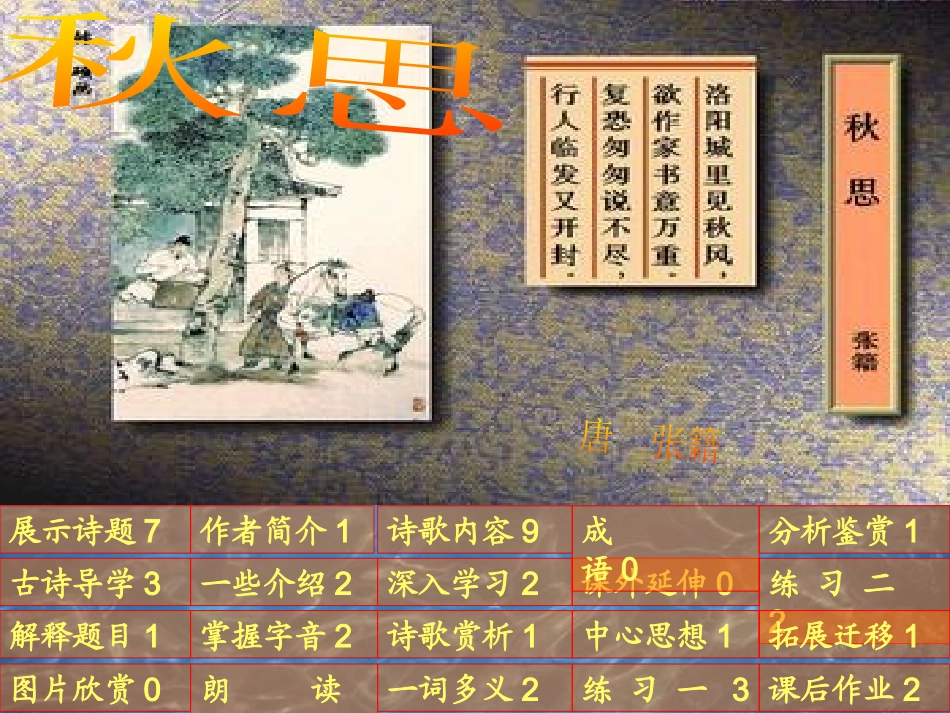 秋思
洛阳城里见秋风，
欲作家书意万重。
复恐匆匆说不尽，
行人临发又开封。
秋思
张籍
唐 张籍
展示诗题 7
作者简介 1
诗歌内容 9
成
语 0
分析鉴赏 1
古诗导学 3
一些介绍 2
深入学习 2
课外延伸 0
练 习 二
2
解释题目 1
掌握字音 2
诗歌赏析 1
中心思想 1
拓展迁移 1
图片欣赏 0
朗 读
一词多义 2
练 习 一 3
课后作业 2